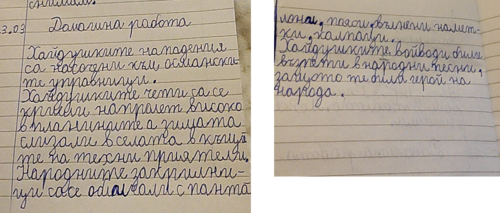 3.03 Домашна работа
Хайдушките нападения
са насочени към османски-
те управници.
Хайдушките чети са се
криели на пролет високо
в планините а зимата
слизали в селата в къщи-
те на техни приятели.
Народните закрилни-
ци са се обличали с панта
лони, пояси, вълнени намет-
ки, калпаци.
Хайдушките войводи били
възпети в народни песни,
защото те били герой на
народа.